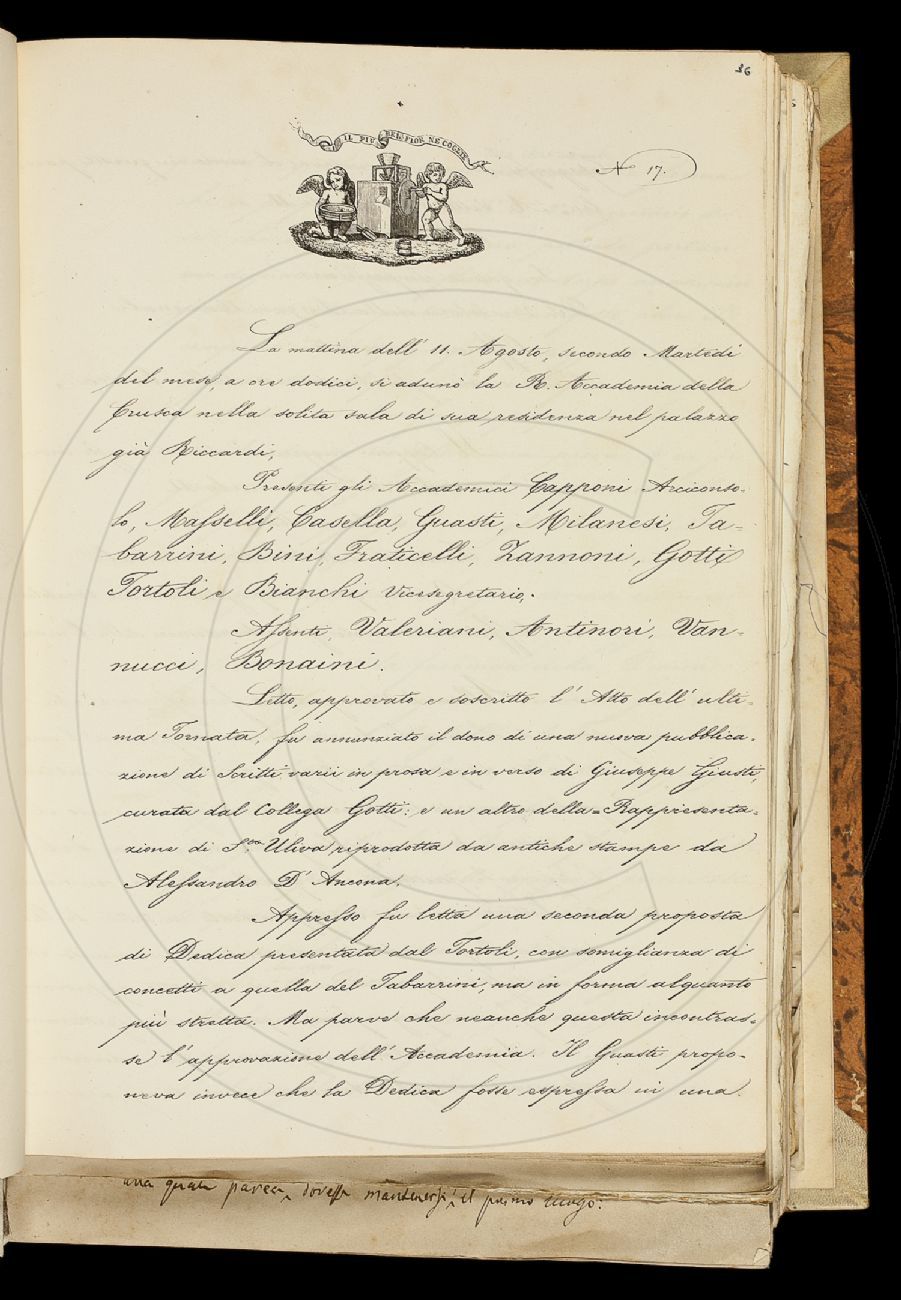 36
IL PIÙ BEL FIOR NE COGLIE
N.º 17.
La mattina dell' 11. Agosto, secondo Martedì
del mese, a ore dodici, si adunò la R. Accademia della
Crusca nella solita sala di sua residenza nel palazzo
già Riccardi,
Presenti gli Accademici Capponi Arciconso-
lo, Masselli, Casella, Guasti, Milanesi, Ta-
barrini, Bini, Fraticelli, Zannoni, Gotti,
Tortoli e Bianchi Vicesegretario;
Assenti, Valeriani, Antinori, Van-
nucci, Bonaini.
Letto, approvato e soscritto l' Atto dell' ulti-
ma Tornata, fu annunziato il dono di una nuova pubblica-
zione di Scritti varii in prosa e in verso di Giuseppe Giusti,
curata dal Collega Gotti: e un altro della = Rappresenta-
zione di S.ta Uliva riprodotta da antiche stampe da
Alessandro D' Ancona.
Appresso fu letta una seconda proposta
di Dedica presentata dal Tortoli, con somiglianza di
concetti a quella del Tabarrini, ma in forma alquanto
più stretta. Ma parve che neanche questa incontras-
se l' approvazione dell' Accademia. Il Guasti propo-
neva invece che la Dedica fosse espressa in una
alla quale parea dovesse mantenersi il primo luogo.